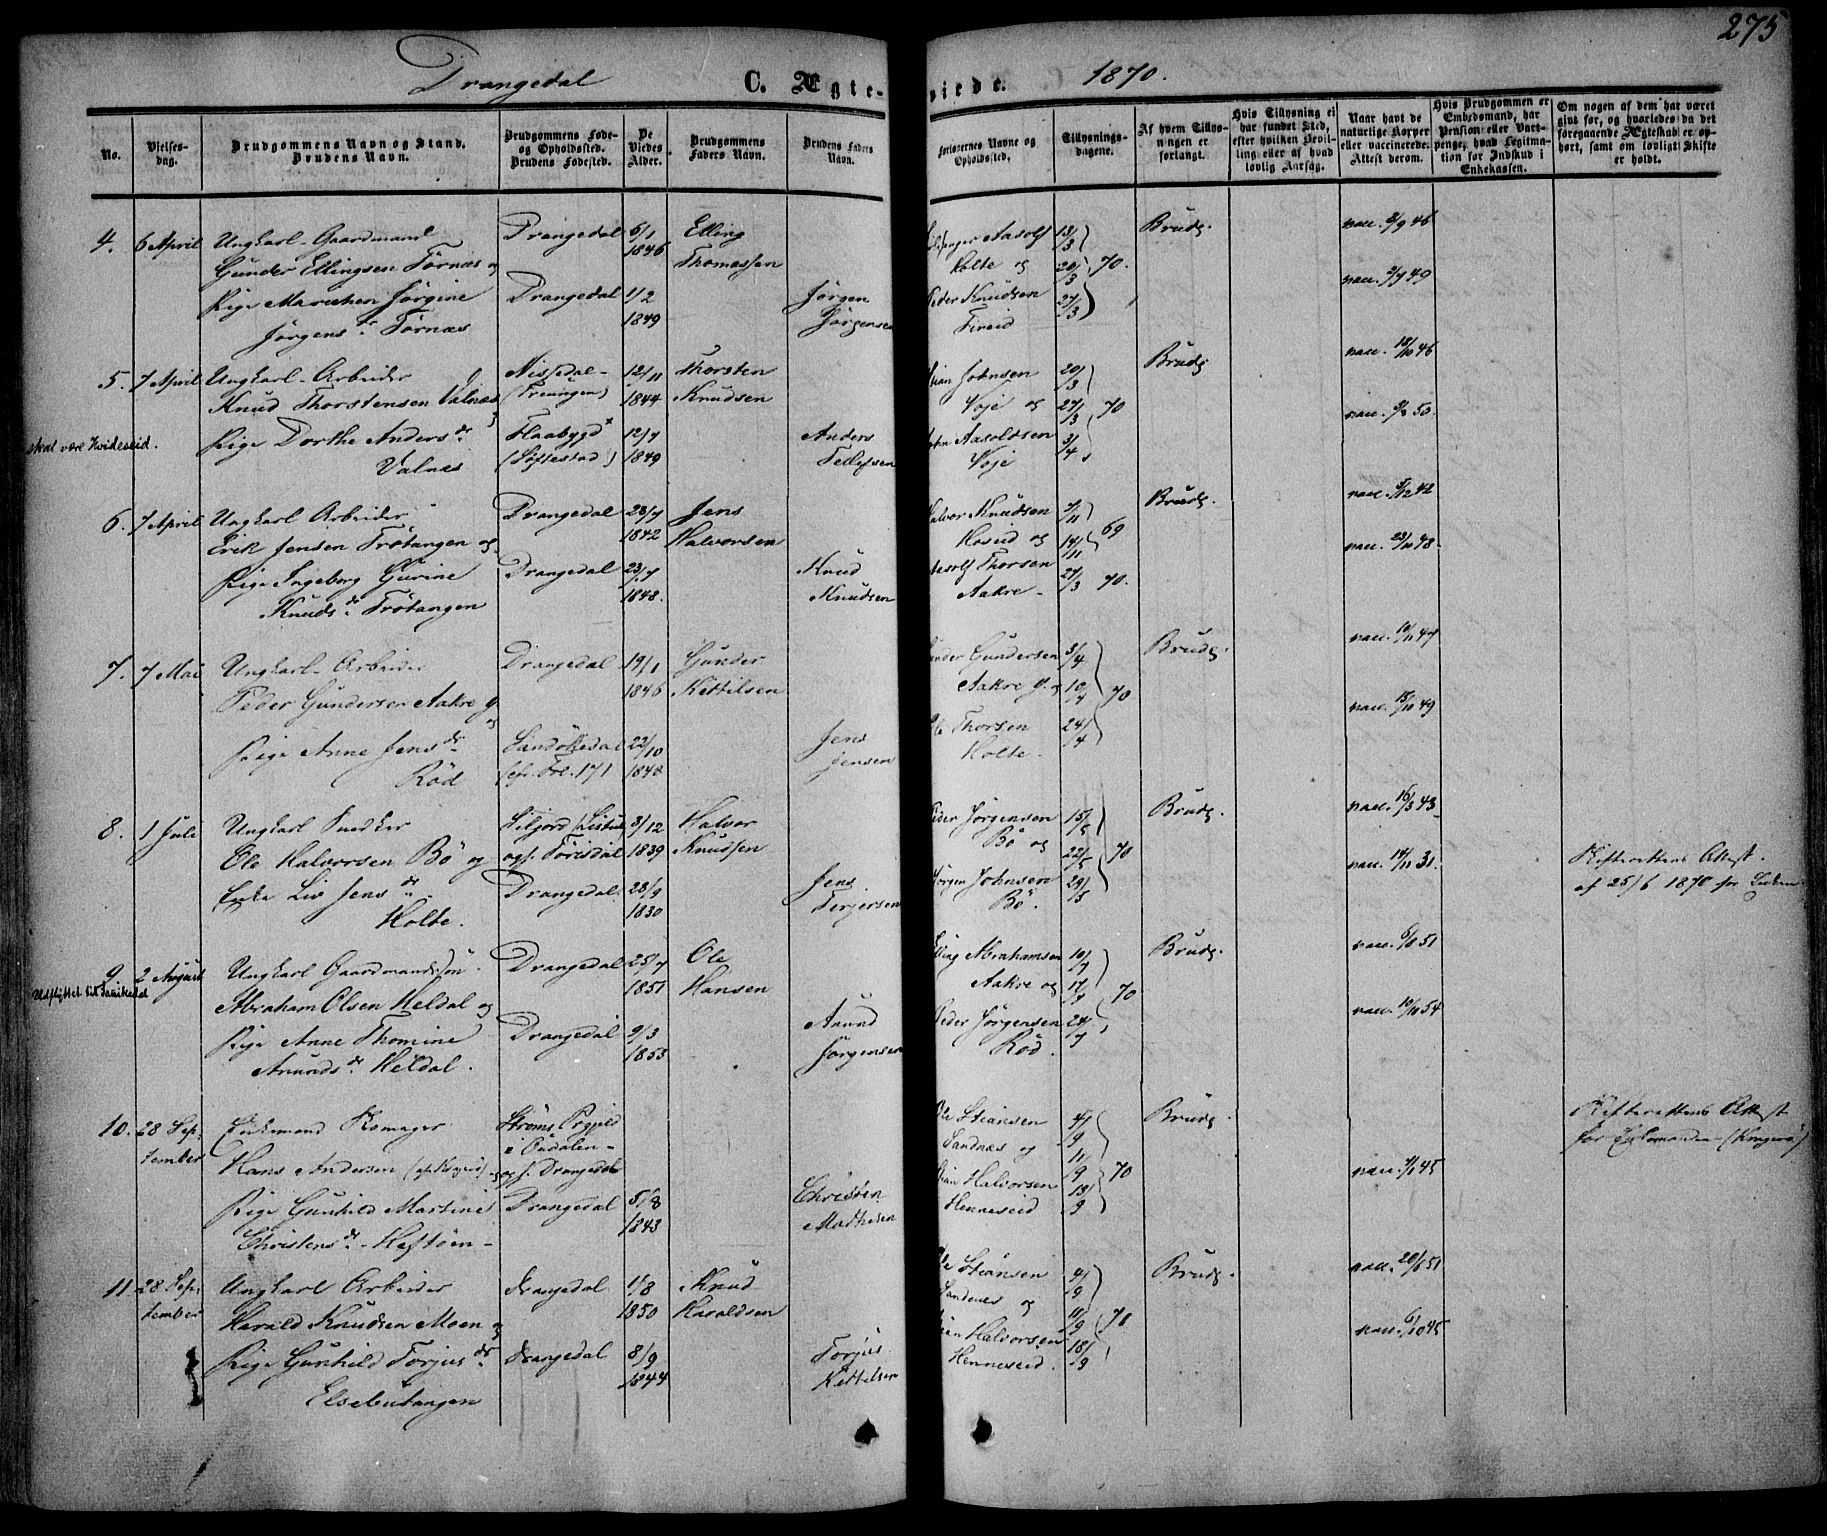 275
Drangedal C. Ægte- viede. 1870.
No.
Vielses-
dag.
Brudgommens Navn og Stand.
Brudens Navn.
Brudgommens Føde-
og Opholdssted.
Brudens Fødested.
De
Viedes
Alder.
Brudgommens
Faders Navn.
Brudens Faders
Navn.
Forlovernes Navne og
Opholdssted.
Tillysnings-
dagene.
Af hvem Tillys-
ningen er
forlangt.
Hvis Tillysning ei
har fundet Sted,
efter hvilken Bevil-
ling eller af hvad
lovlig Aarsag.
Naar havt de
naturlige Kopper
eller vaccinerede.
Attest derom.
Hvis Brudgommen er
Embedsmand, har
Pension eller Vart-
penge, hvad Legitima-
tion for Indskud i
Enkekassen.
Om nogen af dem har været
gift før, og hvorledes da det
foregaaende Ægteskab er op-
hørt, samt om lovligt Skifte
er holdt.
4. 6 April Ungkarl Gaardmand Drangedal 6/1 Elling
Gunder Ellingsen Törnæs og 1846 Thomassen
Pige Marichen Jörgine Drangedal 1/2 Jörgen
Jörgensdr. Törnæs 1849 Jörgensen
Aasolf 13/3 Brudg. vacc. 8/9 46
Holte og 20/3 70.
Peder Knudsen 27/3 vacc. 2/9 49
5. 7 April Ungkarl Arbeider Nissedal 12/11 Thorsten
Knud Thorstensen Valnæs (Treungen) 1844 Knudsen
skal være Kvideseid. Pige Dorthe Andersdr. Flaabygd 12/7 Anders
Valnæs (Söftestad) 1849 Tellefsen
Johnsen 20/3 Brudg. vacc. 18/10 46
Voje og 27/3 70
Aasoldsen 3/4 vacc. 50.
Voje
6. 7 April Ungkarl Arbeider Drangedal 28/7 Jens
Erik Jensen Trötangen og 1842 Halvorsen
Pige Ingeborg Gurine Drangedal 23/7 Knud
Knudsdr. Trötangen 1848. Knudsen
Halvor Knudsen 7/11 Brudg. vacc. 42
Hoseid og 14/11 69
Aasolf Thorsen 27/3 70. vacc. 23/10 48.
Aakre
7. 7 Mai Ungkarl Arbeider Drangedal 19/1 Gunder
Peder Gundersen Aakre 1846 Kittilsen
og
Pige Anne Jensdr. Sandökedal 22/10 Jens
Röd cfr. Fol. 171 1848 Jensen
Gunder Gundersen 3/4 Brudg. vacc. 10/11 47
Aakre og 10/4 70
Ole Thorsen 24/4 vacc. 15/10 49
Holte
8. 1 Juli Ungkarl Snedker Siljord 3/12 Halvor
Ole Halvorsen Bö og ogs. Törisdal 1839 Knudsen
Enke Liv Jensdr. Drangedal 28/9 Jens
Holte. 1830 Terjersen
Peder Jörgensen 15/5 Brudg. vacc. 16/3 43
Bö og 22/5 70
Jörgen Johnsen 29/5 vacc. 14/11 31.
Bö.
Skifterettens Attest
af 25/6 1870 for Enken
9. 2 August Ungkarl Gaardmandssön Drangedal 25/7 Ole
Udflyttet til Abraham Olsen Heldal og 1851 Hansen
Pige Anne Thomine Drangedal 9/3 Anund
Anundsdr. Heldal. 1853 Jörgensen
Abrahamsen 10/7 Brudg. vacc. 6/8 51
Aakre og 17/7 70
Peder Jörgensen 24/7 vacc. 10/10 54
Röd.
10. 28 Sep- Enkemand Ströms Prgjeld
tember Hans Andersen i Oudalen
og f. Drangedal
Pige Gunhild Martine Drangedal 5/8 Christen
Christensdr. Heftöen 1843 Mathisen
Ole Steansen 4/9 Brudg.
Sandnæs og 11/9 70 vacc. 45
Stian Halvorsen 18/9
Henneseid
Skifterettens Attest
for Enkemanden (Kragerö)
11. 28 Sep- Ungkarl Arbeider Drangedal 1/8 Knud
tember Harald Knudsen Moen og 1850 Haraldsen
Pige Gunhild Torjusdr. Drangedal 8/9 Torjus
Elsebutangen 1844 Kittelsen
Ole Steansen 4/9 Brudg. vacc. 20/6 51
Sandnæs og 11/9 70
Stian Halvorsen 18/9 vacc. 6/10 45
Henneseid.